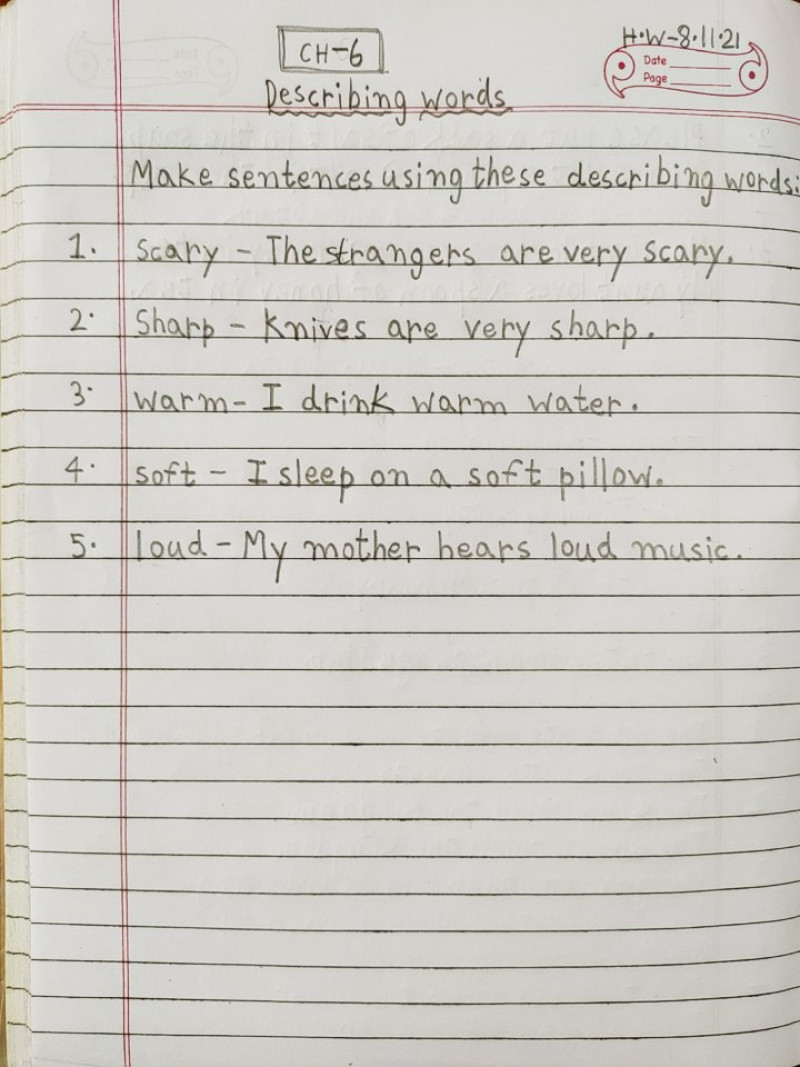 CH-6
H.W-8.11.21
Date
Page
Describing words
Make sentences using these describing words:
1. scary - The strangers are very scary.
2. Sharp - Knives are very sharp.
3. warm - I drink warm water.
4. soft - I sleep on a soft pillow.
5. loud - My mother hears loud music.